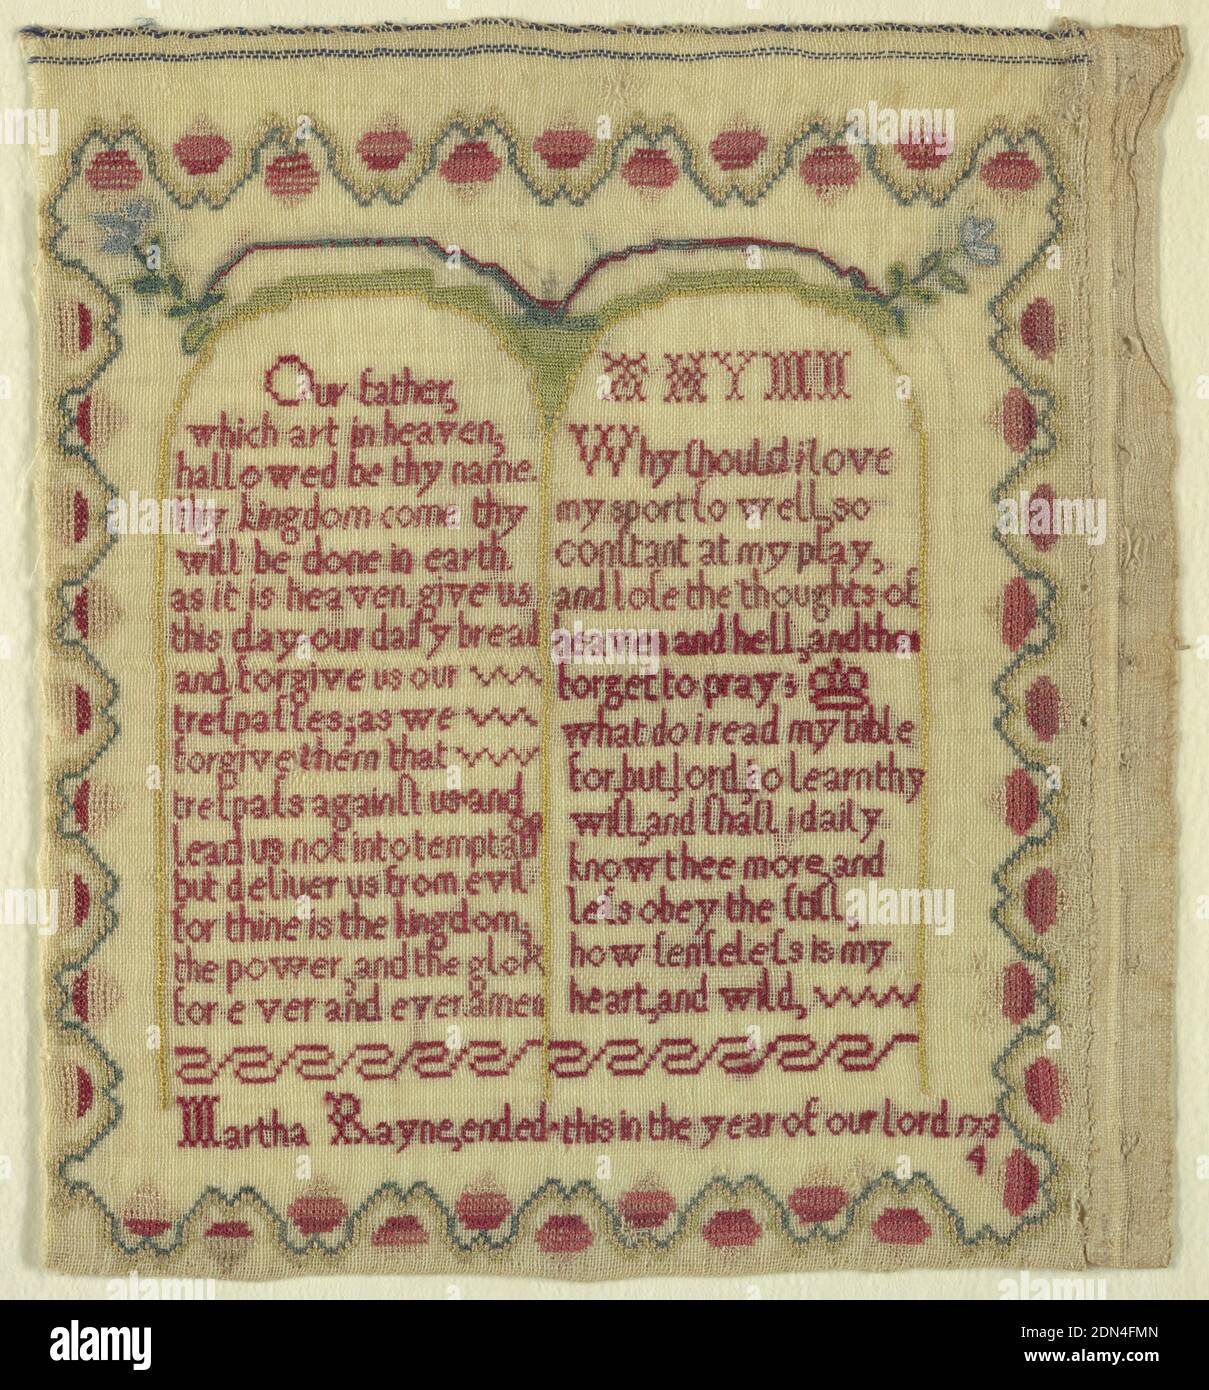 Our father,
which art in heaven,
hallowed be thy name.
thy kingdom come thy
will be done in earth.
as it is heaven. give us
this day our daily bread
and forgive us our
treſpaſſes, as we
forgive them that
treſpaſs againſt us and
lead us not into temptati
on
but deliver us from evil
for thine is the kingdom,
the power, and the glor
for ever and ever. amen
A HYMN
Why ſhould i love
my sport ſo well, so
conſtant at my play,
and loſe the thoughts of
heaven and hell, and then
forget to pray;
what do i read my bible
for, but, lord, to learn thy
will, and ſhall i daily
know thee more, and
leſs obey the ſtill,
how ſenſeleſs is my
heart, and wild,
Martha Rayne, ended this in the year of our lord 173
4
alamy
Image ID: 2DN4FMN
www.alamy.com